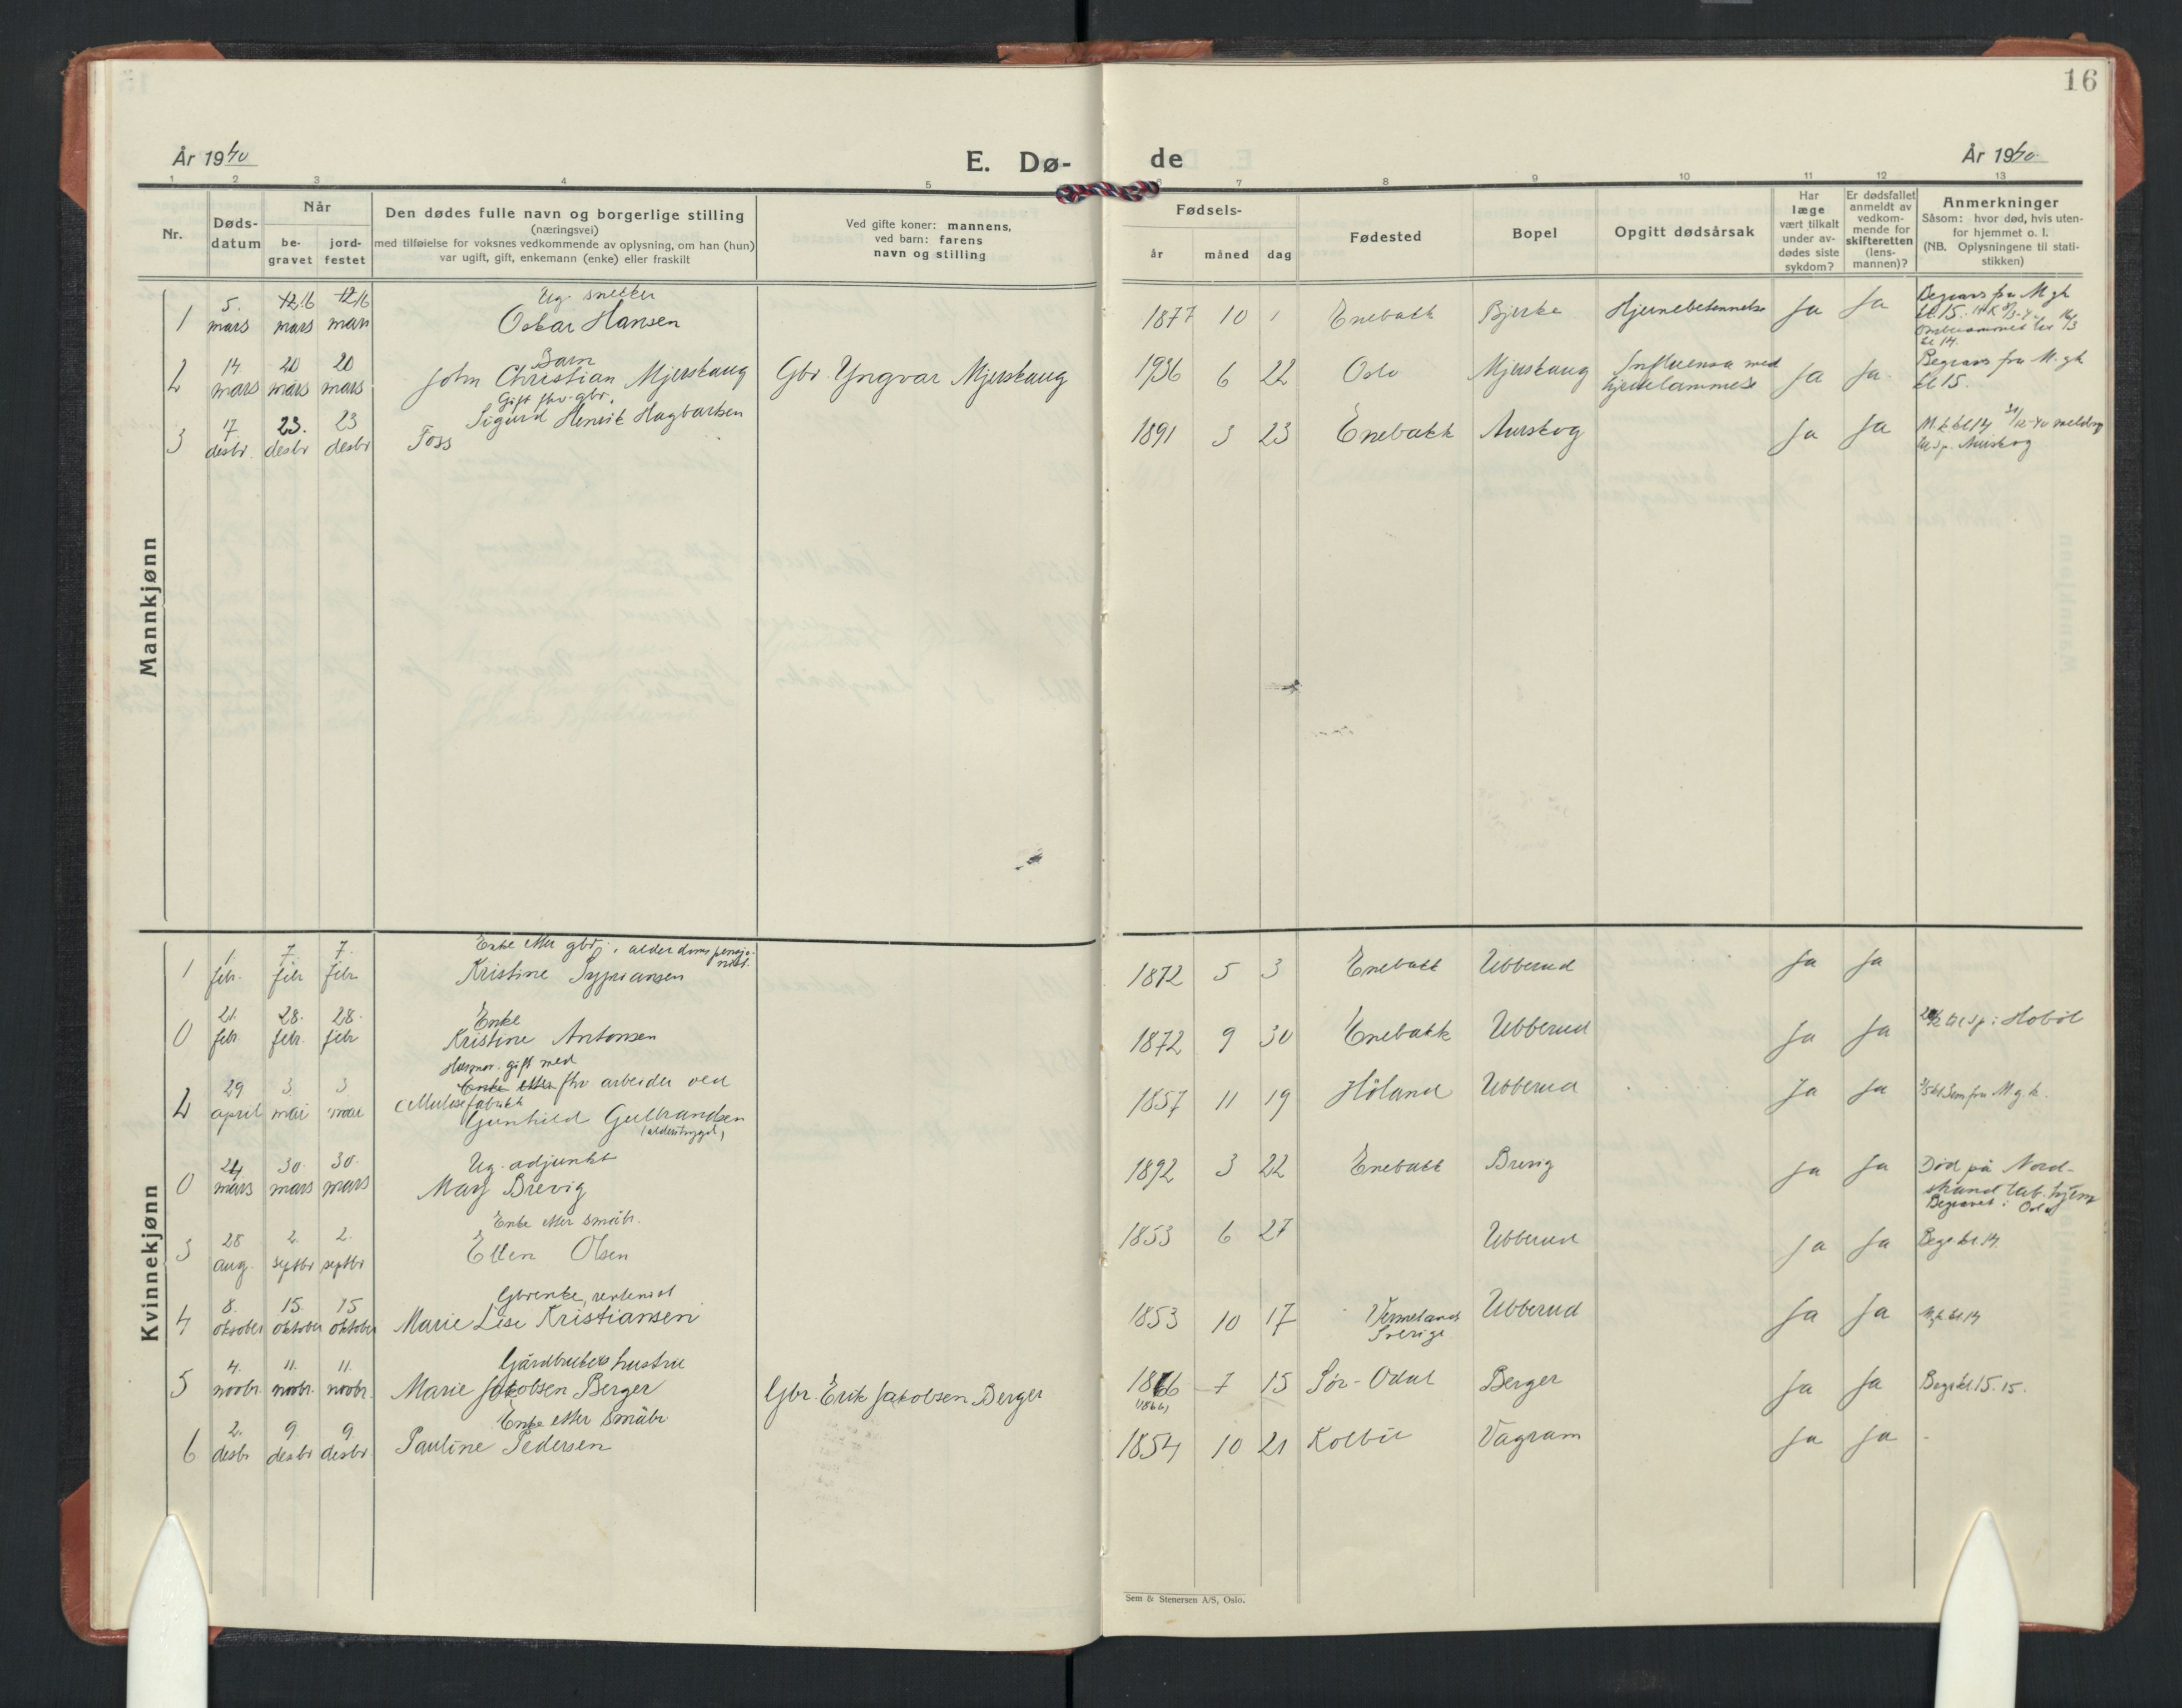 16
År 1940
E. Dø-
de
År 1940
1 2 3 4 5 6 7 8 9 10 11 12 13
Nr.
Døds-
datum
Når
be-
gravet
jord-
festet
Den dødes fulle navn og borgerlige stilling
(næringsvei)
med tilføielse for voksnes vedkommende av oplysning, om han (hun)
var ugift, gift, enkemann (enke) eller fraskilt
Ved gifte koner: mannens,
ved barn: farens
navn og stilling
Fødsels-
år
måned
dag
Fødested
Bopel
Opgitt dødsårsak
Har
læge
vært tilkalt
under av-
dødes siste
sykdom?
Er dødsfallet
anmeldt av
vedkom-
mende for
skifteretten
(lens-
mannen)?
Anmerkninger
Såsom: hvor død, hvis uten-
for hjemmet o. l.
(NB. Oplysningene til stati-
stikken)
Mannkjønn
Ug. snekker
1 5. mars 12. 16 mars 12 16 mars Oskar Hansen 1877 10 1 Enebakk Bjerke Hjernebetennelse Ja Ja
Begraves fra M gk
kl. 15.
kl 14.
Barn
2 14 mars 20 mars 20 mars John Christian Mjerskaug Gbr. Yngvar Mjerskaug 1936 6 22 Oslo Mjerskaug Influensa med
hjertelammelse Ja Ja Begraves fra M. gk
kl 15.
Gift fhv. gbr.
Sigurd Henrik Hagbartsen
3 17. desbr. 23. desbr 23 desbr Foss 1891 3 23 Enebakk Aurskog Ja Ja M. k kl 14 31/12-40 melding
til sp. Aurskog
Kvinnekjønn
Enke etter gbr., alderdomspensjo-
nist.
1 1 febr. 7. febr 7. febr Kristine Sypriansen 1872 5 3 Enebakk Ubberud Ja Ja
Enke
0 21. febr. 28. febr. 28. febr Kristine Antonsen 1872 9 30 Enebakk Ubberud Ja Ja til sp. i Hobøl
Husmor. gift med
Enke etter fhv arbeider ved
Cellulosefabrikk
2 29 april 3 mai 3 mai Gunhild Gulbrandsen 1857 11 19 Høland Ubberud Ja Ja fra M g. k.
(alderstrygd)
Ug. adjunkt
0 24 mars 30. mars 30. mars Mary Brevig 1892 3 22 Enebakk Brevig Ja Ja Død på Nord-
strand tub. hjem
Begravet i Oslo
Enke etter småbr.
3 28 aug. 2. septbr 2. septbr Ellen Olsen 1853 6 27 Ubberud Ja Ja Begr kl. 14.
Gbrenke, rentenist
4 8. oktober 15. oktober 15 oktober Marie Lise Kristiansen 1853 10 17 Vermeland
Sverige Ubberud Ja Ja Mgk kl 14
Gårdbrukers hustru
5 4. novbr. 11. novbr. 11. novbr. Marie Jakobsen Berger Gbr. Erik Jakobsen Berger 1866 7 15 Sør-Odal Berger Ja Ja Begr kl. 15. 15.
(1866)
Enke etter småbr
6 2. desbr 9. desbr 9. desbr. Pauline Pedersen 1854 10 21 Kolbü Vagram Ja Ja -
Sem & Stenersen A/S, Oslo.